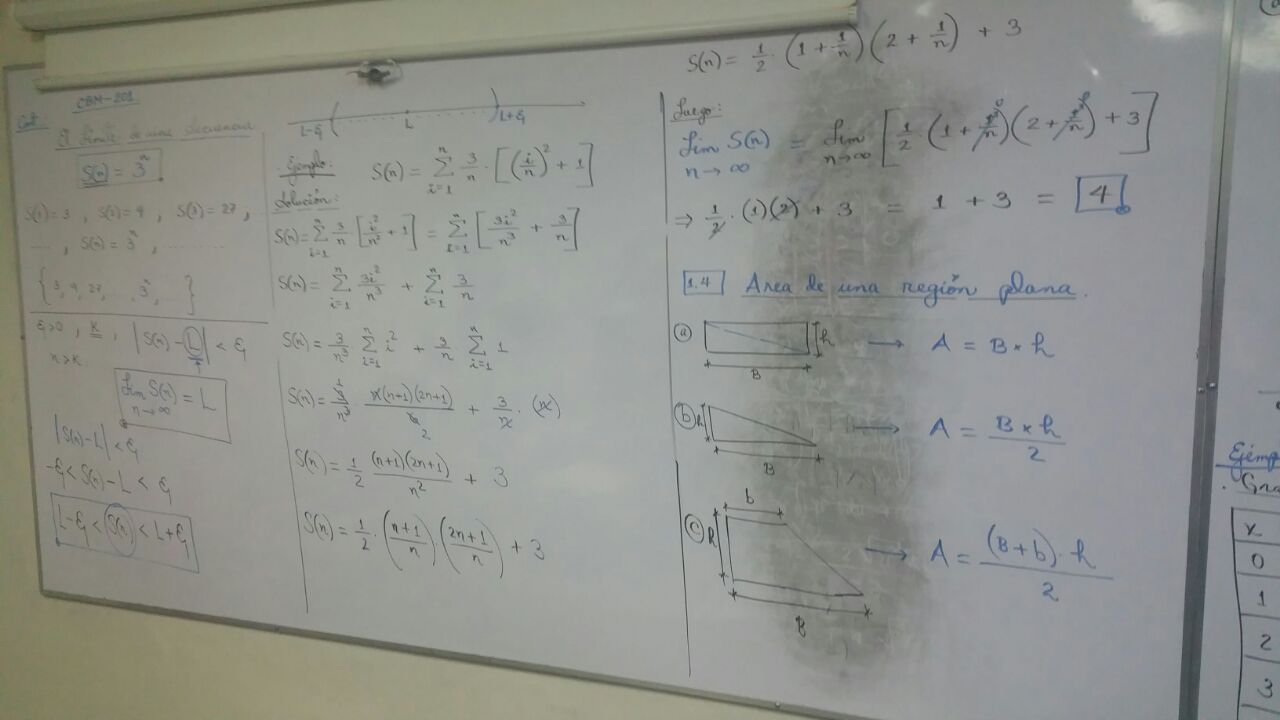 CBM-201
Cont.
El límite de una secuencia
S(n) = 3ⁿ
S(1) = 3 , S(2) = 9 , S(3) = 27 ,
..... , S(n) = 3ⁿ , .........
{3, 9, 27, ... , 3ⁿ, ...}
ε > 0 , K , |S(n) - L| < ε
n > K
Lim S(n) = L
n→∞
|S(n) - L| < ε
-ε < S(n) - L < ε
L-ε < S(n) < L+ε
L-ε L L+ε
Ejemplo: S(n) = ∑ᵢ₌₁ⁿ 3/n · [(i/n)² + 1]
Solución:
S(n) = ∑ᵢ₌₁ⁿ 3/n [i²/n² + 1] = ∑ᵢ₌₁ⁿ [3i²/n³ + 3/n]
S(n) = ∑ᵢ₌₁ⁿ 3i²/n³ + ∑ᵢ₌₁ⁿ 3/n
S(n) = 3/n³ ∑ᵢ₌₁ⁿ i² + 3/n ∑ᵢ₌₁ⁿ 1
S(n) = 3/n³ n(n+1)(2n+1)/6 + 3/n · (n)
1
2
S(n) = 1/2 (n+1)(2n+1)/n² + 3
S(n) = 1/2 · ((n+1)/n)((2n+1)/n) + 3
S(n) = 1/2 · (1 + 1/n)(2 + 1/n) + 3
Luego:
Lim S(n) = Lim [1/2 · (1 + 1/n)(2 + 1/n) + 3]
n→∞ n→∞
⇒ 1/2 · (1)(2) + 3 = 1 + 3 = 4
1.4 Area de una región plana.
a h → A = B × h
B
b h → A = B × h / 2
B
b
c h → A = (B + b) · h / 2
B
Ejemp
x
0
1
2
3